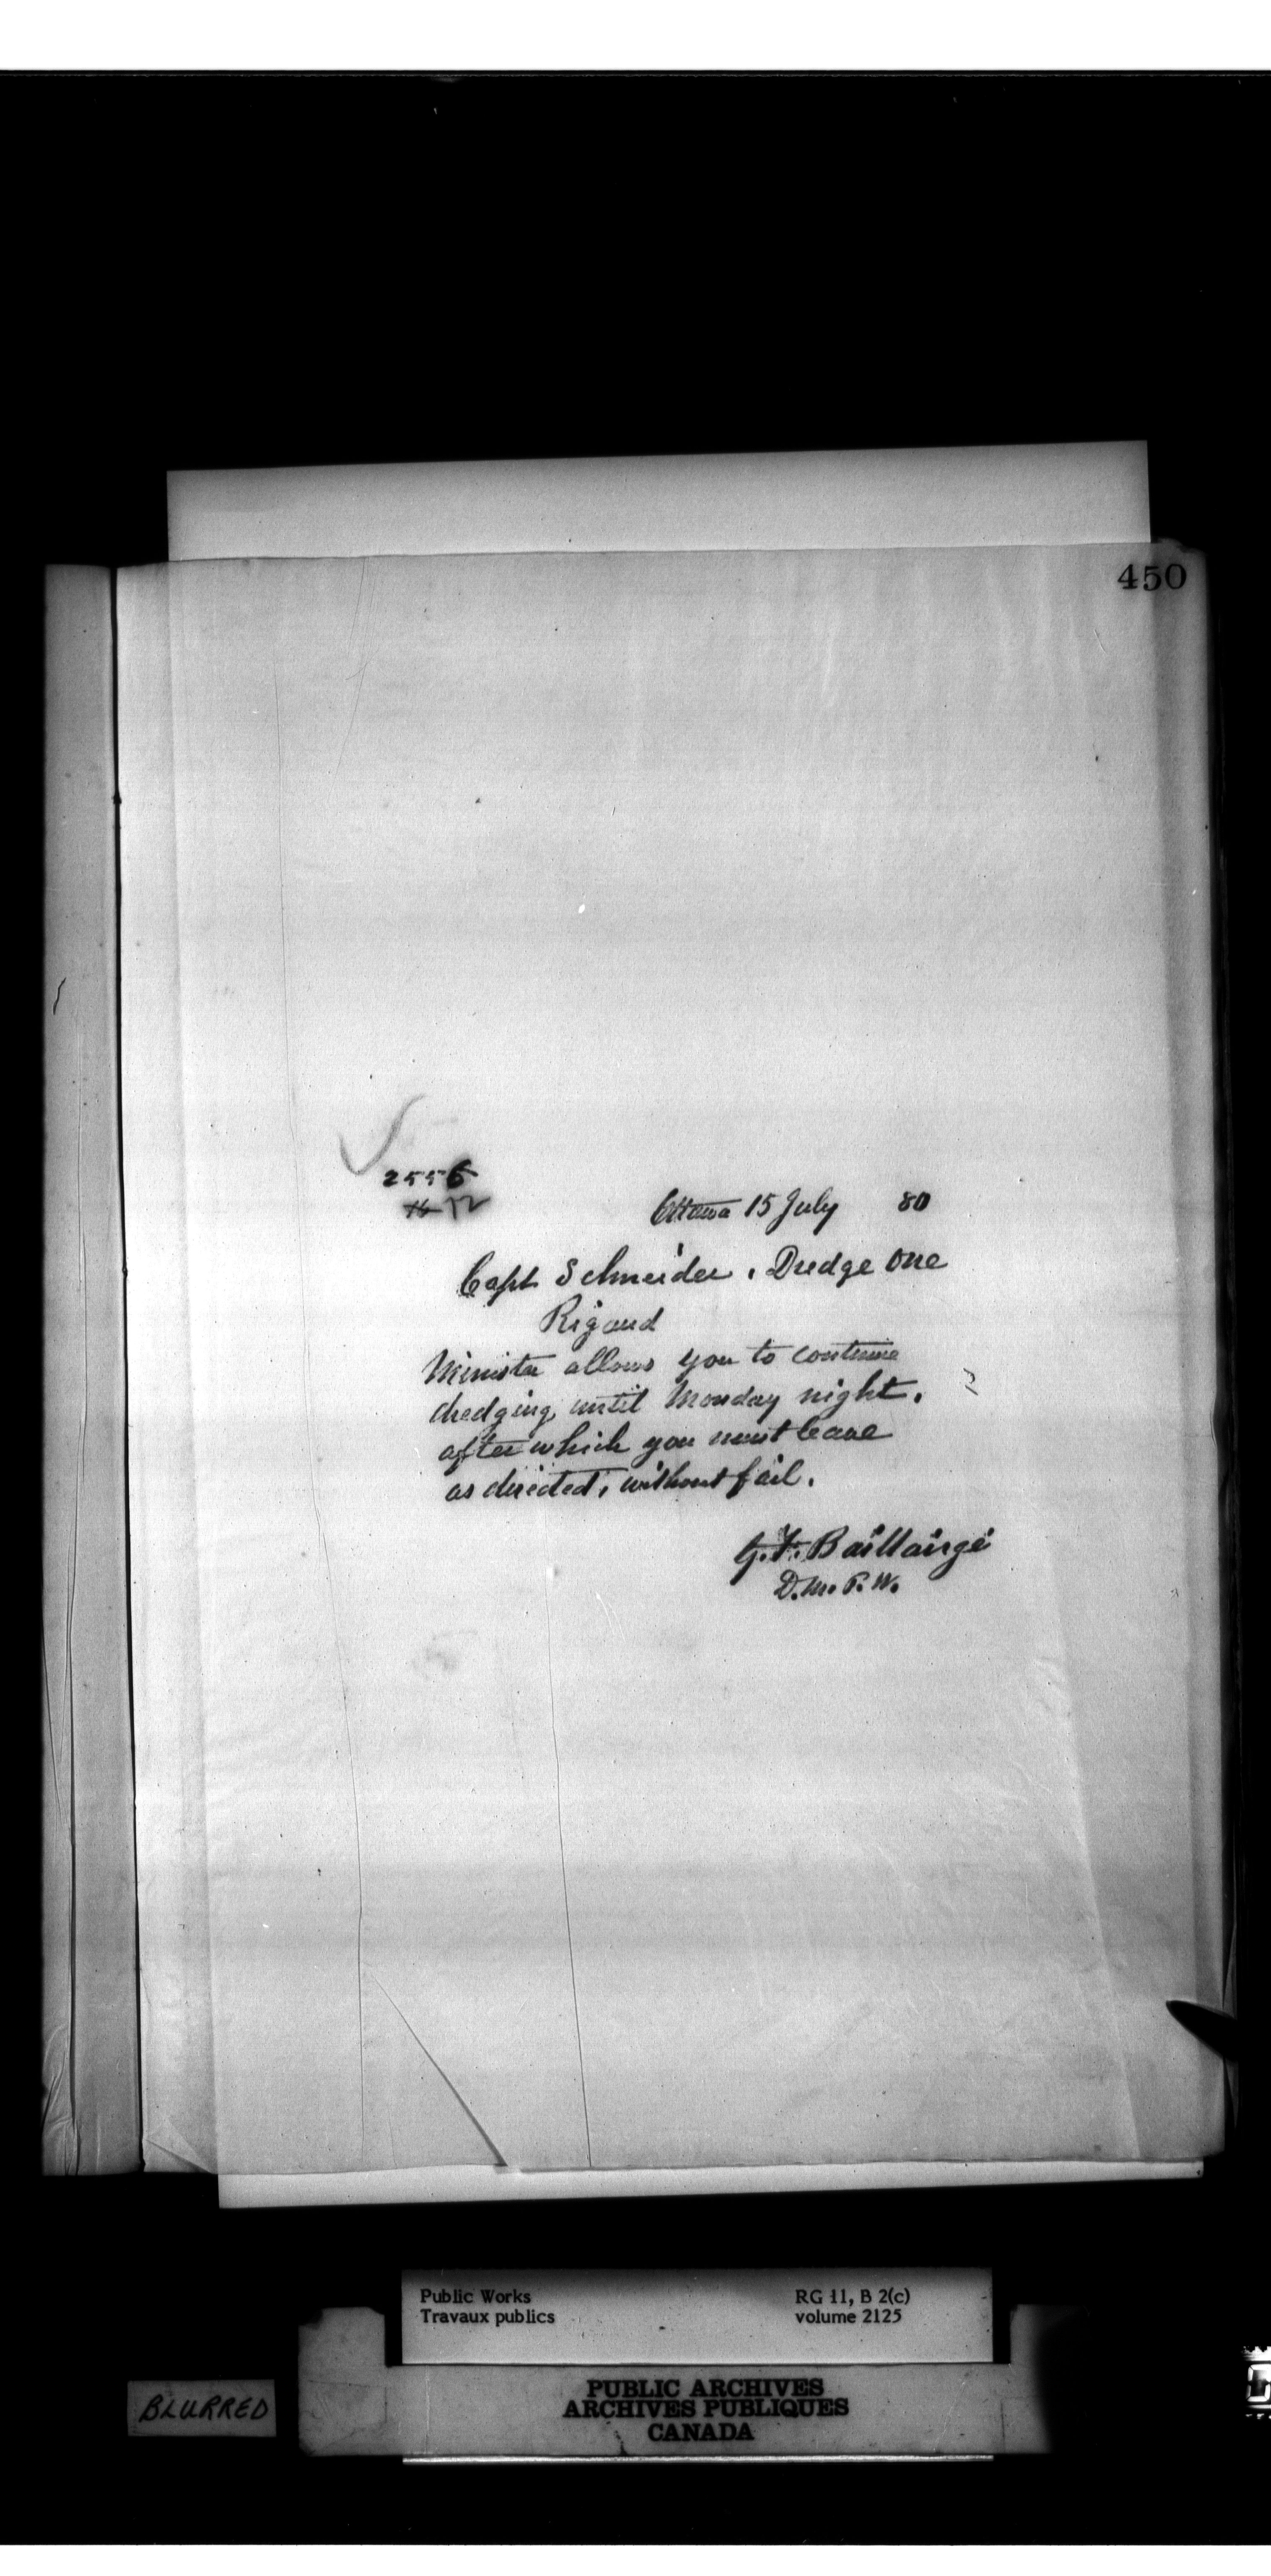 450
2556
Ottawa 15 July 80
Capt Schneider. Dredge One
Rigaud
Minister allows you to continue
dredging until Monday night.
after which you must leave
as directed, without fail.
G.F. Baillairgé
D.M.P.W.
Public Works
Travaux publics
RG 11, B 2(c)
volume 2125
BLURRED
PUBLIC ARCHIVES
ARCHIVES PUBLIQUES
CANADA